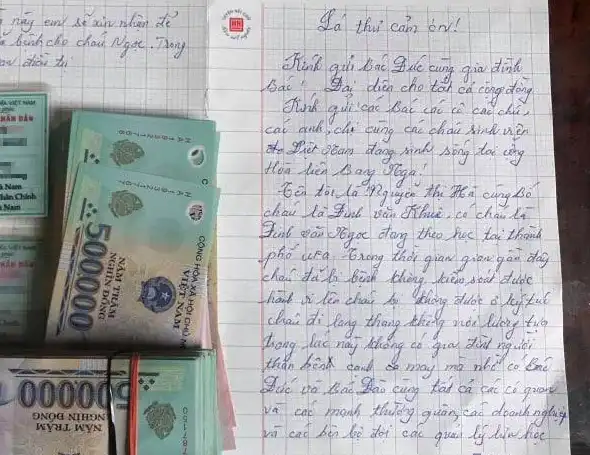 này em sẽ xin nhận để
bệnh cho cháu Ngọc. Trong
Lá thư cảm ơn!
Kính gửi Bác Đức cùng gia đình
Bác! Đại diện cho tất cả cộng đồng
Kính gửi các Bác các cô các chú,
các anh, chị cùng các cháu sinh viên
Việt Nam đang sinh sống tại cộng
Hòa liên Bang Nga!
Tên tôi là Nguyễn thị Hà cùng Bố
cháu là Đinh văn Khuê, có cháu là
Đinh văn Ngọc đang theo học tại thành
phố ufa. Trong thời gian gian gần đây
cháu đã bị bệnh không kiểm soát được
hành vi lên cháu bị không được ở ký túc
cháu đi lang thang không nơi lương tựa
trong lúc này không có gia đình người
thân bên cạnh may mà nhờ có Bác
Đức và Bác Đào cùng tất cả các cơ quan
và các mạnh thường quân, các doanh nghiệp
và các bên bộ đội các quản lý lưu học
VIỆT NAM
NHÂN DÂN
Nam
Nam
CỘNG HÒA XÃ HỘI CHỦ N
VIỆT NAM
500000
NĂM TRĂM
NGHÌN ĐỒNG
500000
NĂM TRĂM
NGHÌN ĐỒNG